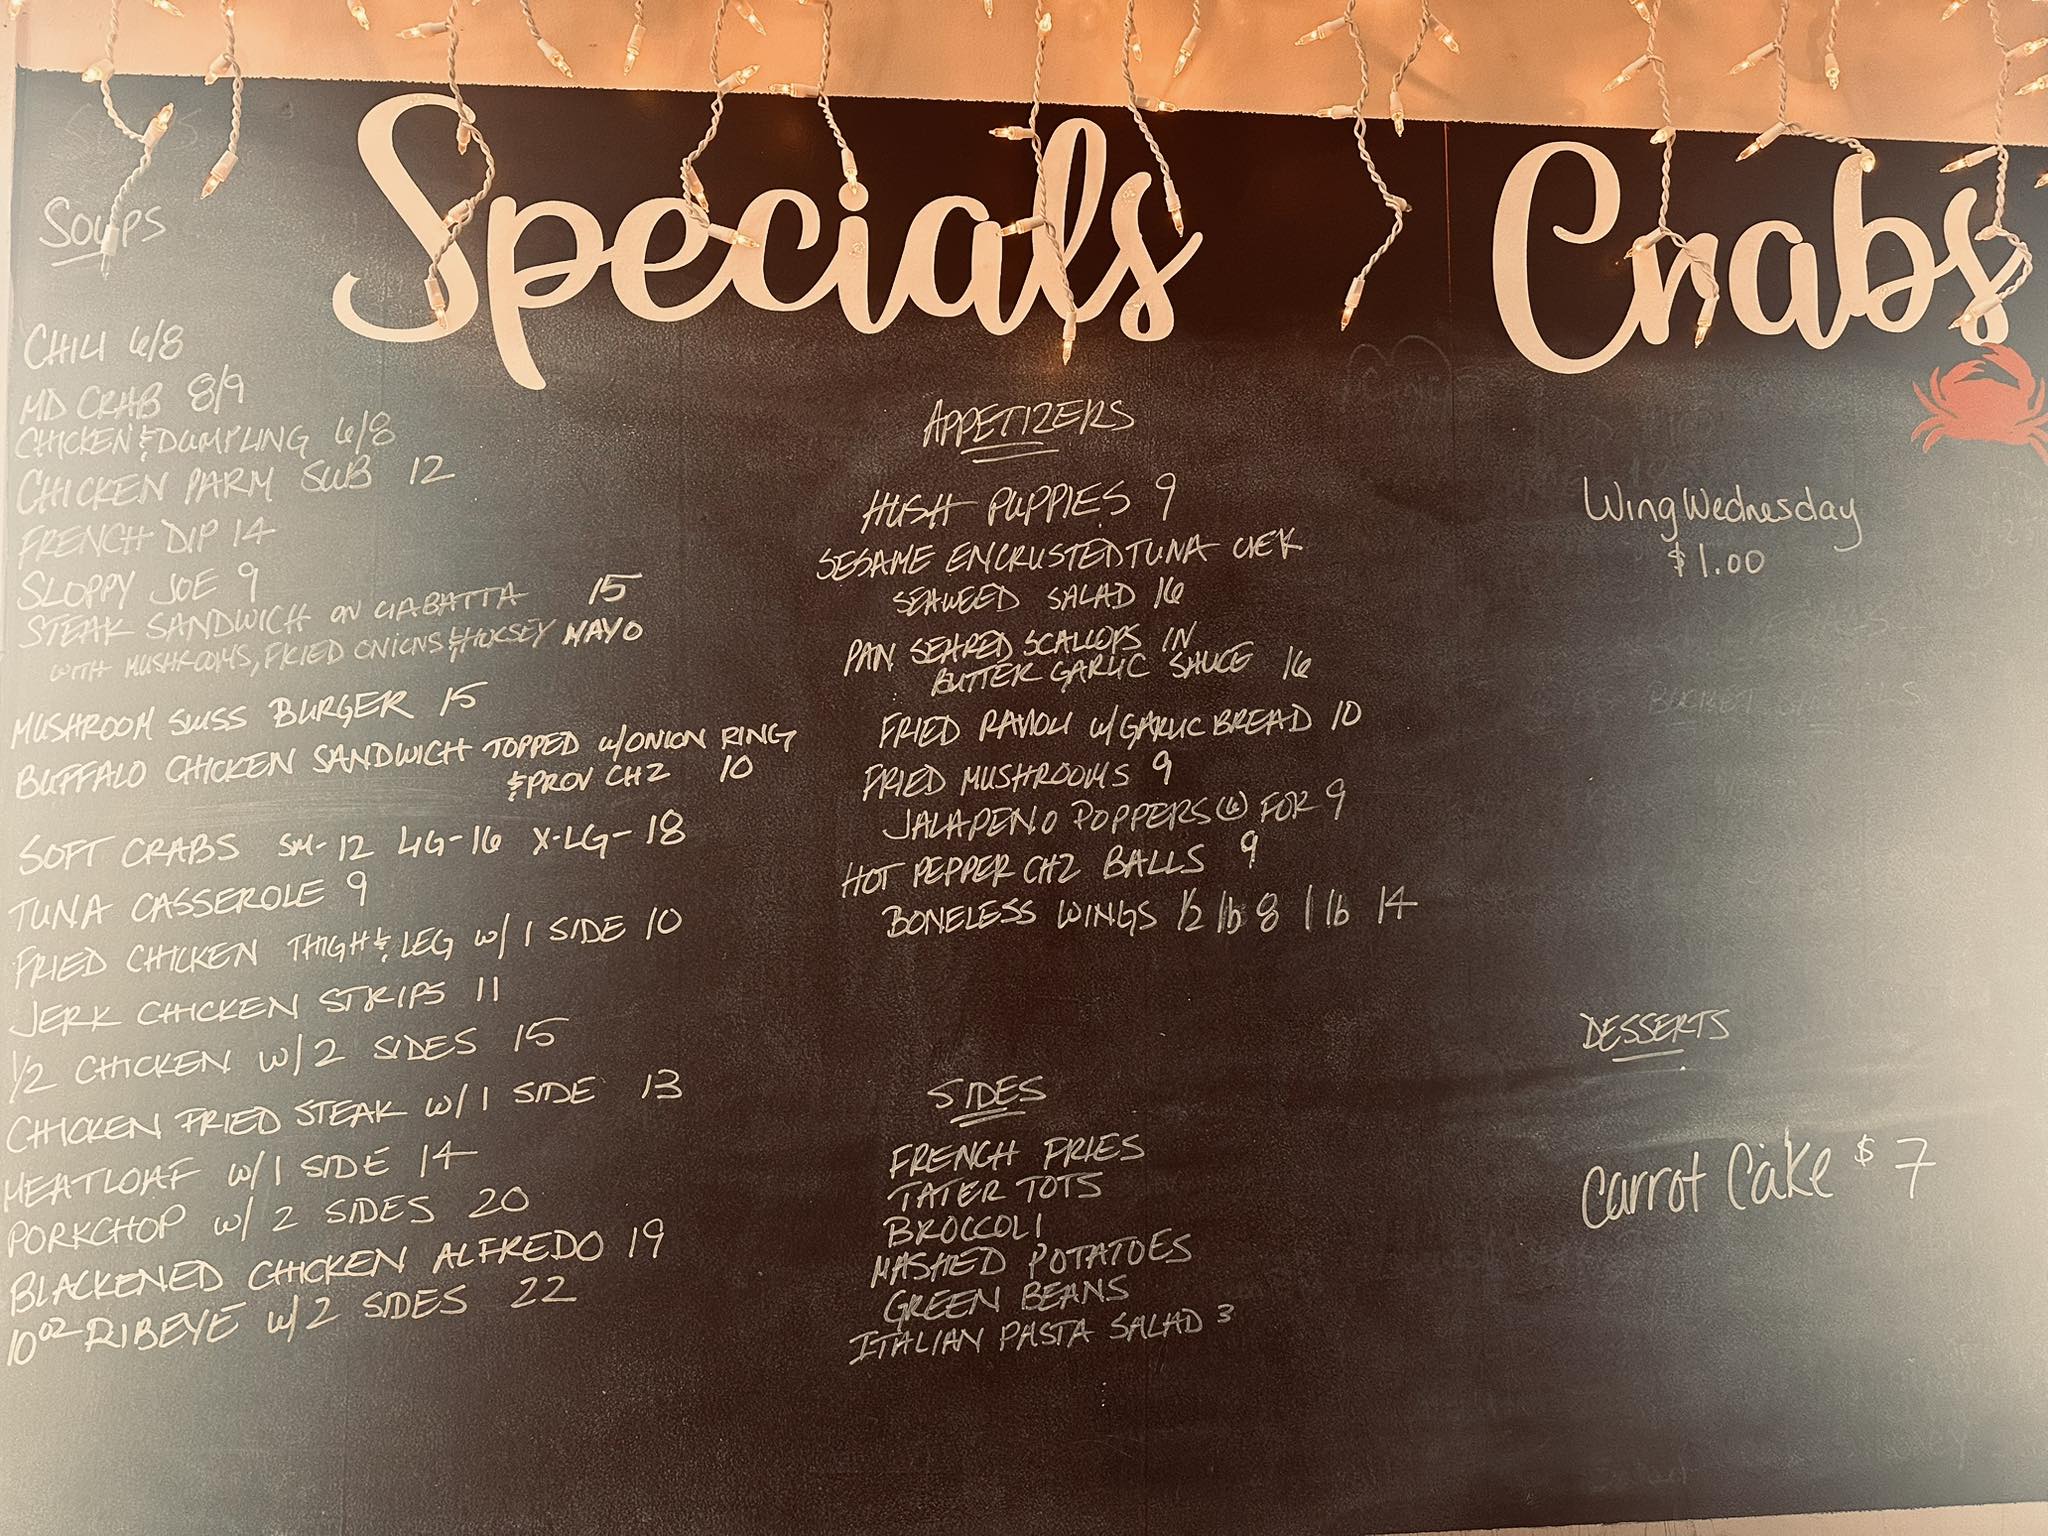 Specials
Crabs
SOUPS
CHILI 6/8
MD CRAB 8/9
CHICKEN & DUMPLING 6/8
CHICKEN PARM SUB 12
FRENCH DIP 14
SLOPPY JOE 9
STEAK SANDWICH ON CIABATTA 15
WITH MUSHROOMS, FRIED ONIONS & HORSEY MAYO
MUSHROOM SWISS BURGER 15
BUFFALO CHICKEN SANDWICH TOPPED W/ONION RING
& PROV CHZ 10
SOFT CRABS SM-12 LG-16 X-LG-18
TUNA CASSEROLE 9
FRIED CHICKEN THIGH & LEG W/ 1 SIDE 10
JERK CHICKEN STRIPS 11
1/2 CHICKEN W/ 2 SIDES 15
CHICKEN FRIED STEAK W/ 1 SIDE 13
MEATLOAF W/ 1 SIDE 14
PORKCHOP W/ 2 SIDES 20
BLACKENED CHICKEN ALFREDO 19
10 OZ RIBEYE W/ 2 SIDES 22
APPETIZERS
HUSH PUPPIES 9
SESAME ENCRUSTED TUNA
SEAWEED SALAD 16
PAN SEARED SCALLOPS IN
BUTTER GARLIC SAUCE 16
FRIED RAVIOLI W/ GARLIC BREAD 10
FRIED MUSHROOMS 9
JALAPENO POPPERS (6) FOR 9
HOT PEPPER CHZ BALLS 9
BONELESS WINGS 1/2 lb 8 1 lb 14
SIDES
FRENCH FRIES
TATER TOTS
BROCCOLI
MASHED POTATOES
GREEN BEANS
ITALIAN PASTA SALAD 3
Wing Wednesday
$1.00
DESSERTS
Carrot Cake $7